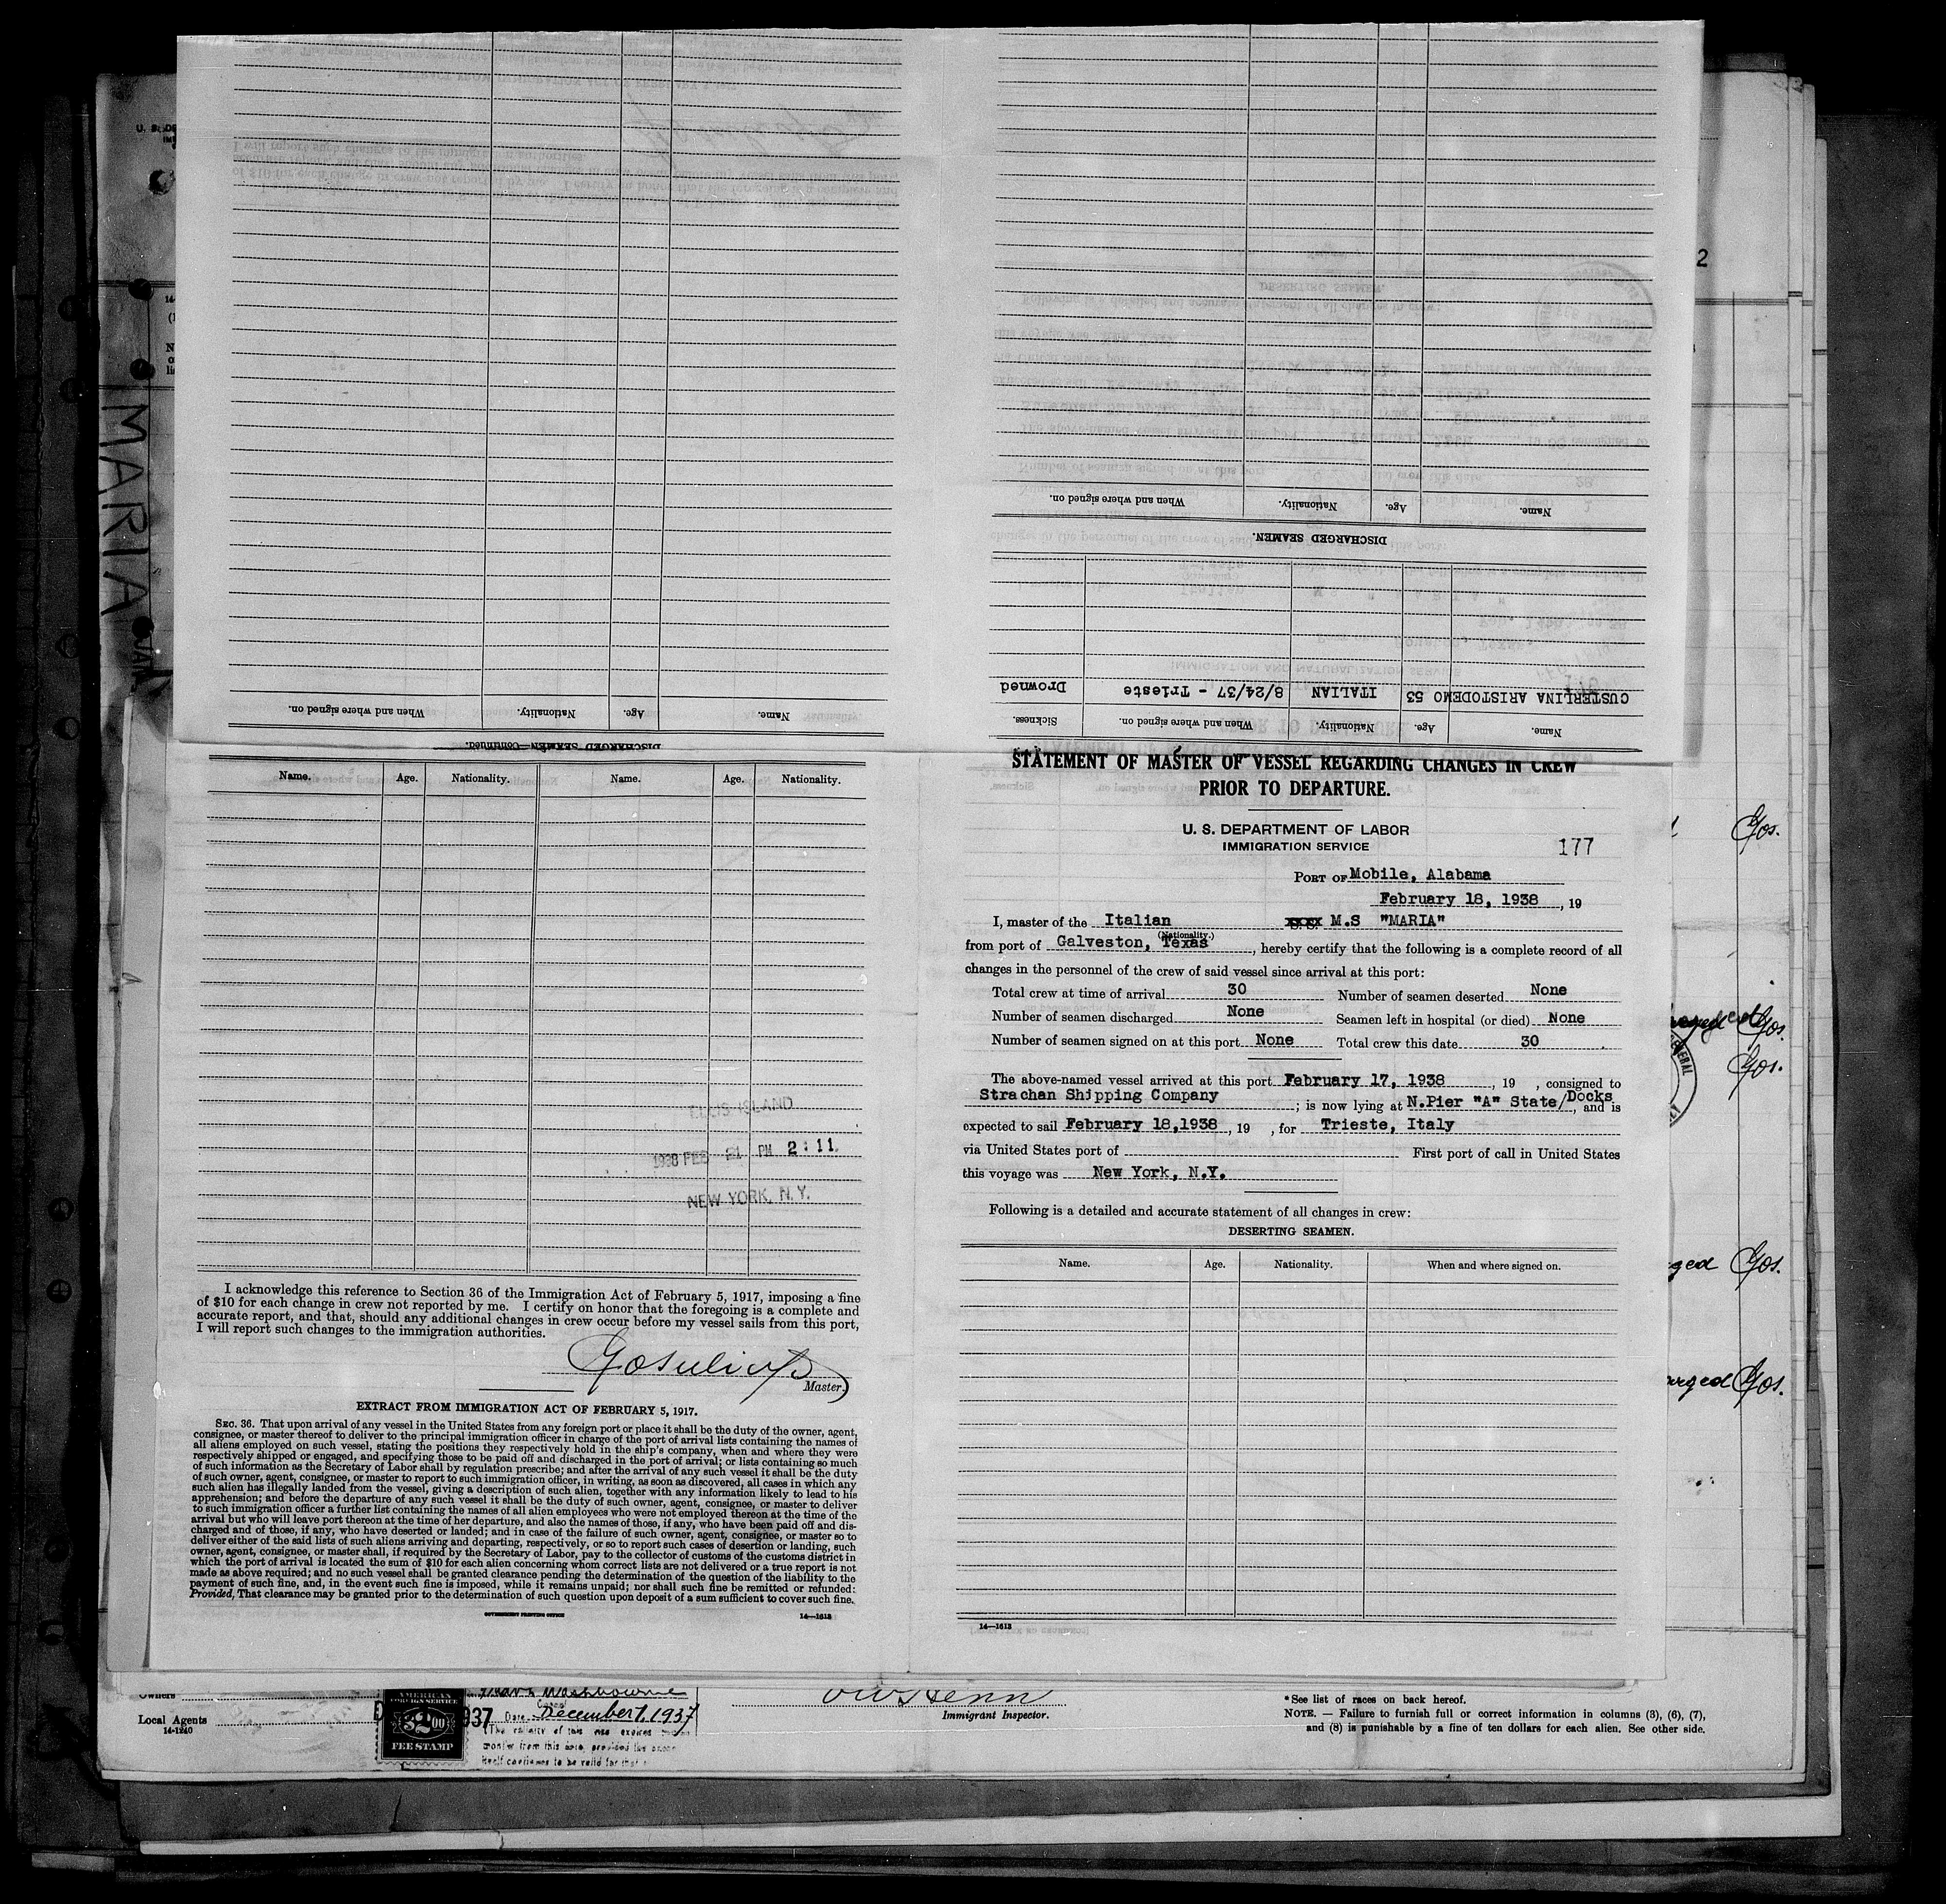 MARIA
DISCHARGED SEAMEN.
Name. Age. Nationality. When and where signed on.
Name. Age. Nationality. When and where signed on. Sickness.
CUSTERLINA ARISTODEMO 53 ITALIAN 8/24/37 - Trieste Drowned
Name. Age. Nationality. When and where signed on.
2
DISCHARGED SEAMEN—Continued.
Name. Age. Nationality. Name. Age. Nationality.
ELLIS ISLAND
1938 FEB 21 PM 2:11
NEW YORK, N.Y.
I acknowledge this reference to Section 36 of the Immigration Act of February 5, 1917, imposing a fine
of $10 for each change in crew not reported by me. I certify on honor that the foregoing is a complete and
accurate report, and that, should any additional changes in crew occur before my vessel sails from this port,
I will report such changes to the immigration authorities.
Master.
EXTRACT FROM IMMIGRATION ACT OF FEBRUARY 5, 1917.
SEC. 36. That upon arrival of any vessel in the United States from any foreign port or place it shall be the duty of the owner, agent,
consignee, or master thereof to deliver to the principal immigration officer in charge of the port of arrival lists containing the names of
all aliens employed on such vessel, stating the positions they respectively hold in the ship's company, when and where they were
respectively shipped or engaged, and specifying those to be paid off and discharged in the port of arrival; or lists containing so much
of such information as the Secretary of Labor shall by regulation prescribe; and after the arrival of any such vessel it shall be the duty
of such owner, agent, consignee, or master to report to such immigration officer, in writing, as soon as discovered, all cases in which any
such alien has illegally landed from the vessel, giving a description of such alien, together with any information likely to lead to his
apprehension; and before the departure of any such vessel it shall be the duty of such owner, agent, consignee, or master to deliver
to such immigration officer a further list containing the names of all alien employees who were not employed thereon at the time of the
arrival but who will leave port thereon at the time of her departure, and also the names of those, if any, who have been paid off and dis-
charged and of those, if any, who have deserted or landed; and in case of the failure of such owner, agent, consignee, or master so to
deliver either of the said lists of such aliens arriving and departing, respectively, or so to report such cases of desertion or landing, such
owner, agent, consignee, or master shall, if required by the Secretary of Labor, pay to the collector of customs of the customs district in
which the port of arrival is located the sum of $10 for each alien concerning whom correct lists are not delivered or a true report is not
made as above required; and no such vessel shall be granted clearance pending the determination of the question of the liability to the
payment of such fine, and, in the event such fine is imposed, while it remains unpaid; nor shall such fine be remitted or refunded:
Provided, That clearance may be granted prior to the determination of such question upon deposit of a sum sufficient to cover such fine.
GOVERNMENT PRINTING OFFICE 14—1613
STATEMENT OF MASTER OF VESSEL REGARDING CHANGES IN CREW
PRIOR TO DEPARTURE.
U. S. DEPARTMENT OF LABOR
IMMIGRATION SERVICE
177
PORT OF Mobile, Alabama
February 18, 1938, 19
I, master of the Italian M.S "MARIA"
(Nationality.)
from port of Galveston, Texas, hereby certify that the following is a complete record of all
changes in the personnel of the crew of said vessel since arrival at this port:
Total crew at time of arrival 30 Number of seamen deserted None
Number of seamen discharged None Seamen left in hospital (or died) None
Number of seamen signed on at this port None Total crew this date 30
The above-named vessel arrived at this port February 17, 1938, 19 , consigned to
Strachan Shipping Company; is now lying at N.Pier "A" State/Docks, and is
expected to sail February 18,1938, 19 , for Trieste, Italy
via United States port of First port of call in United States
this voyage was New York, N.Y.
Following is a detailed and accurate statement of all changes in crew:
DESERTING SEAMEN.
Name. Age. Nationality. When and where signed on.
14—1613
Gos.
Gos.
Gos.
Gos.
Gos.
Owners
Local Agents
14-1240
AMERICAN
FOREIGN SERVICE
$2.00
FEE STAMP
Date December 1, 1937
Immigrant Inspector.
*See list of races on back hereof.
NOTE. — Failure to furnish full or correct information in columns (3), (6), (7),
and (8) is punishable by a fine of ten dollars for each alien. See other side.